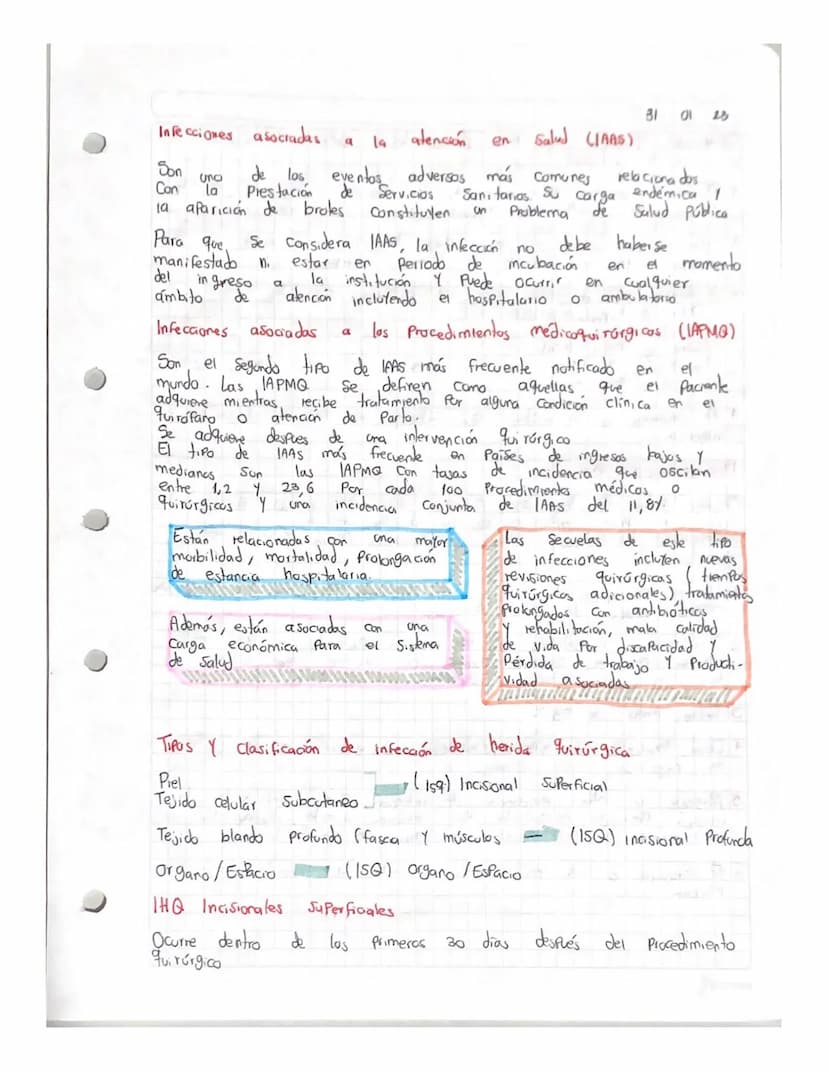 31 01 23
Infecciones asociadas a la atención en Salud (IAAS)
Son uno de los eventos adversos más comunes relacionados
Con la Prestación de Servicios Sanitarios Su carga endémica y
la aparición de brotes Constituyen un Problema de Salud Pública
Para que se considera IAAS, la infección no debe haberse
manifestado ni estar en Periodo de incubación en el momento
del ingreso a la institución y Puede ocurrir en cualquier
ámbito de atención incluyendo el hospitalario o ambulatorio
Infecciones asociadas a los Procedimientos médicoquirúrgicos (IAPMQ)
Son el Segundo tipo de IAAS más frecuente notificado en el
mundo. Las IAPMQ Se definen Como aquellas que el Paciente
adquiere mientras recibe tratamiento Por alguna Condición Clínica en el
quirófano o atención de Parto.
Se adquiere despues de una intervención quirúrgica
El tipo de IAAS más frecuente en Países de ingresos bajos y
medianos Son las IAPMQ Con tasas de incidencia que oscilan
entre 1,2 y 23,6 Por cada 100 Procedimientos médicos o
quirúrgicos y una incidencia Conjunta de IAAS del 11,8%.
Están relacionadas con una mayor
morbilidad, mortalidad, Prolongación
de estancia hospitalaria.
Además, están asociadas con una
Carga económica Para el Sistema
de Salud
Las Secuelas de este tipo
de infecciones incluyen nuevas
revisiones quirúrgicas (tiempos
quirúrgicos adicionales) tratamientos
Prolongados con antibióticos
y rehabilitación, mala calidad
de vida Por discapacidad y
Pérdida de trabajo y Producti-
vidad asociadas
Tipos y Clasificación de infección de herida quirúrgica
Piel
Tejido celular Subcutaneo
(ISQ) Incisional Superficial
Tejido blando profundo (fasca y músculos (ISQ) incisional Profunda
Organo/Espacio (ISQ) Organo/Espacio
IHQ Incisionales Superficiales
Ocurre dentro de los Primeros 30 días después del Procedimiento
quirúrgico